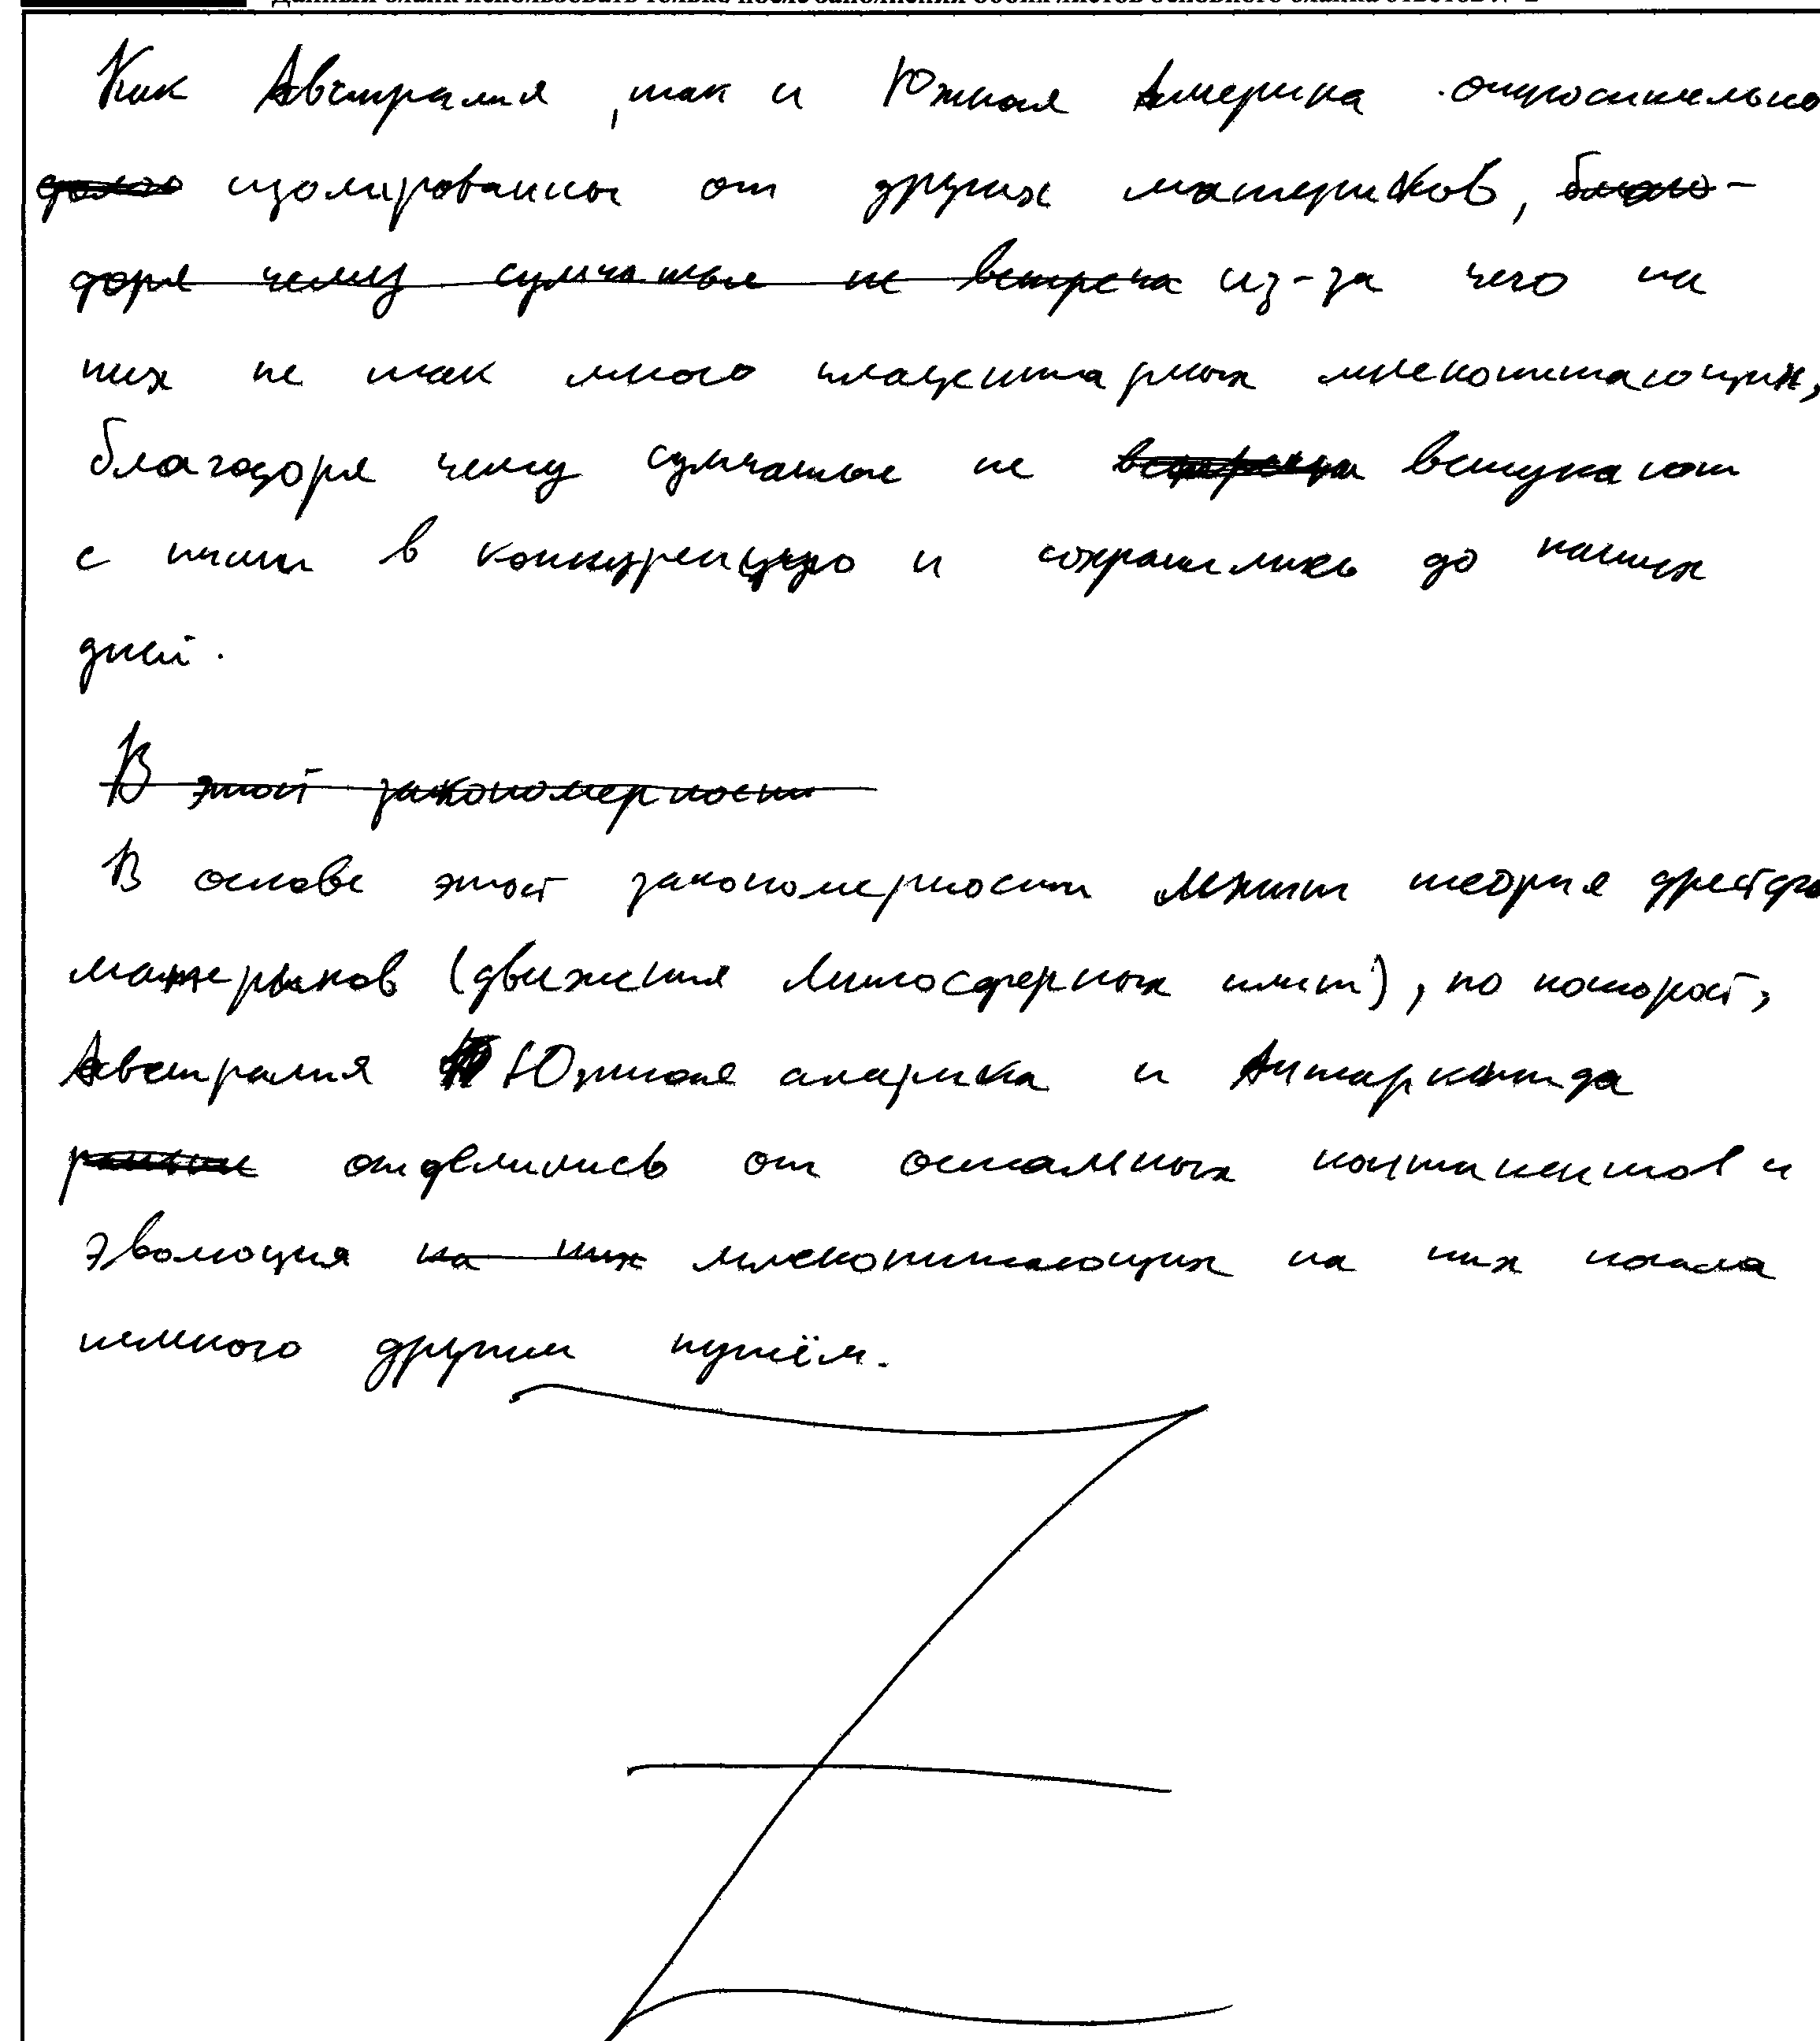 Данный бланк использовать только после заполнения обоих листов основного бланка ответов № 2
Как Австралия, так и Южная Америка относительно
долго изолированны от других материков, благо-
доря чему сумчатые не встреча из-за чего на
них не так много плацентарных млекопитающих,
благодоря чему сумчатые не встреча вступают
с ними в конкуренцию и сохранились до наших
дней.
В этой закономерности
В основе этой закономерности лежит теория дрейфа
материков (движения литосферных плит), по которой,
Австралия Южная америка и Антарктида
отделились от остальных континентов и
эволюция на них млекопитающих на них пошла
немного другим путём.